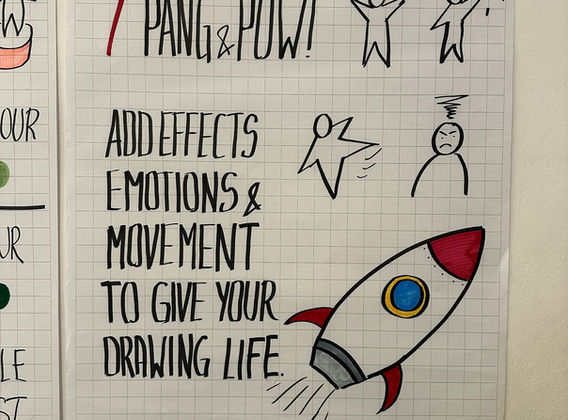 PANG & POW!
ADD EFFECTS
EMOTIONS &
MOVEMENT
TO GIVE YOUR
DRAWING LIFE.